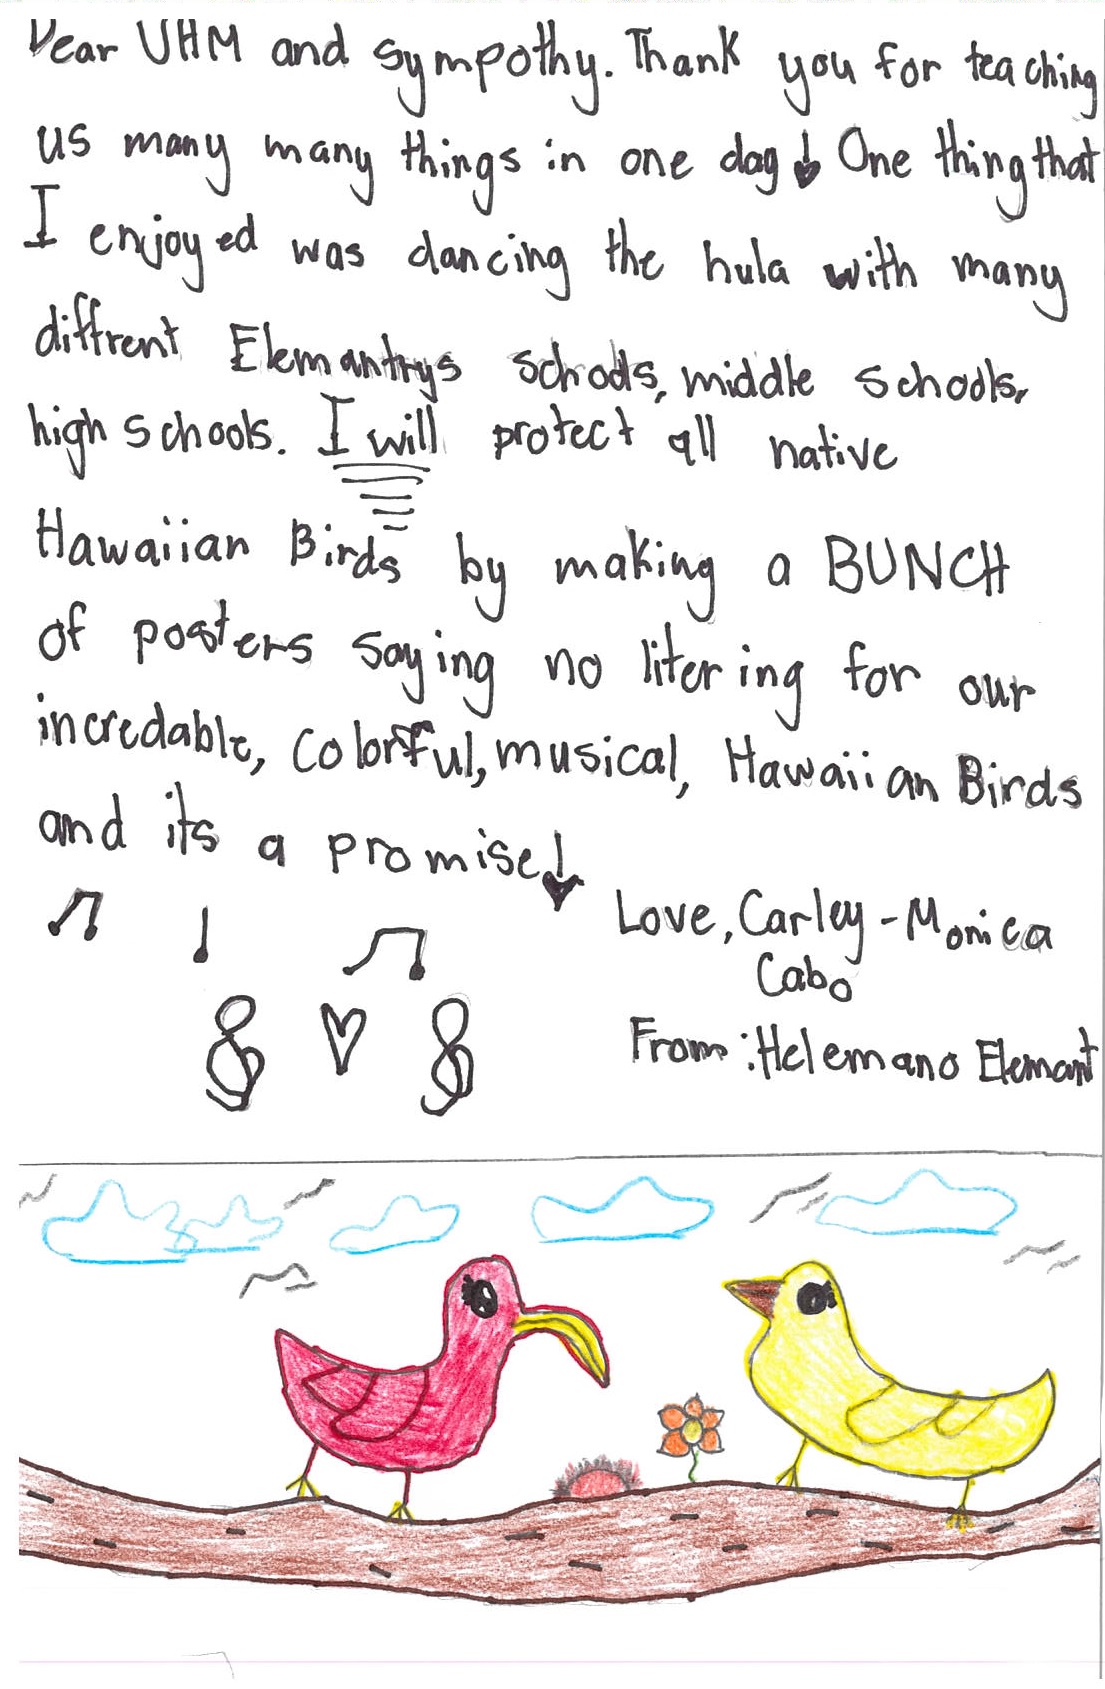 Dear UHM and sympothy. Thank you for teaching
us many many things in one day! One thing that
I enjoyed was dancing the hula with many
diffrent Elemantrys schools, middle schools,
high schools. I will protect all native
Hawaiian Birds by making a BUNCH
of posters saying no litering for our
incredable, colorful, musical, Hawaiian Birds
and its a promise!
Love, Carley-Monica
Cabo
From: Helemano Elemant